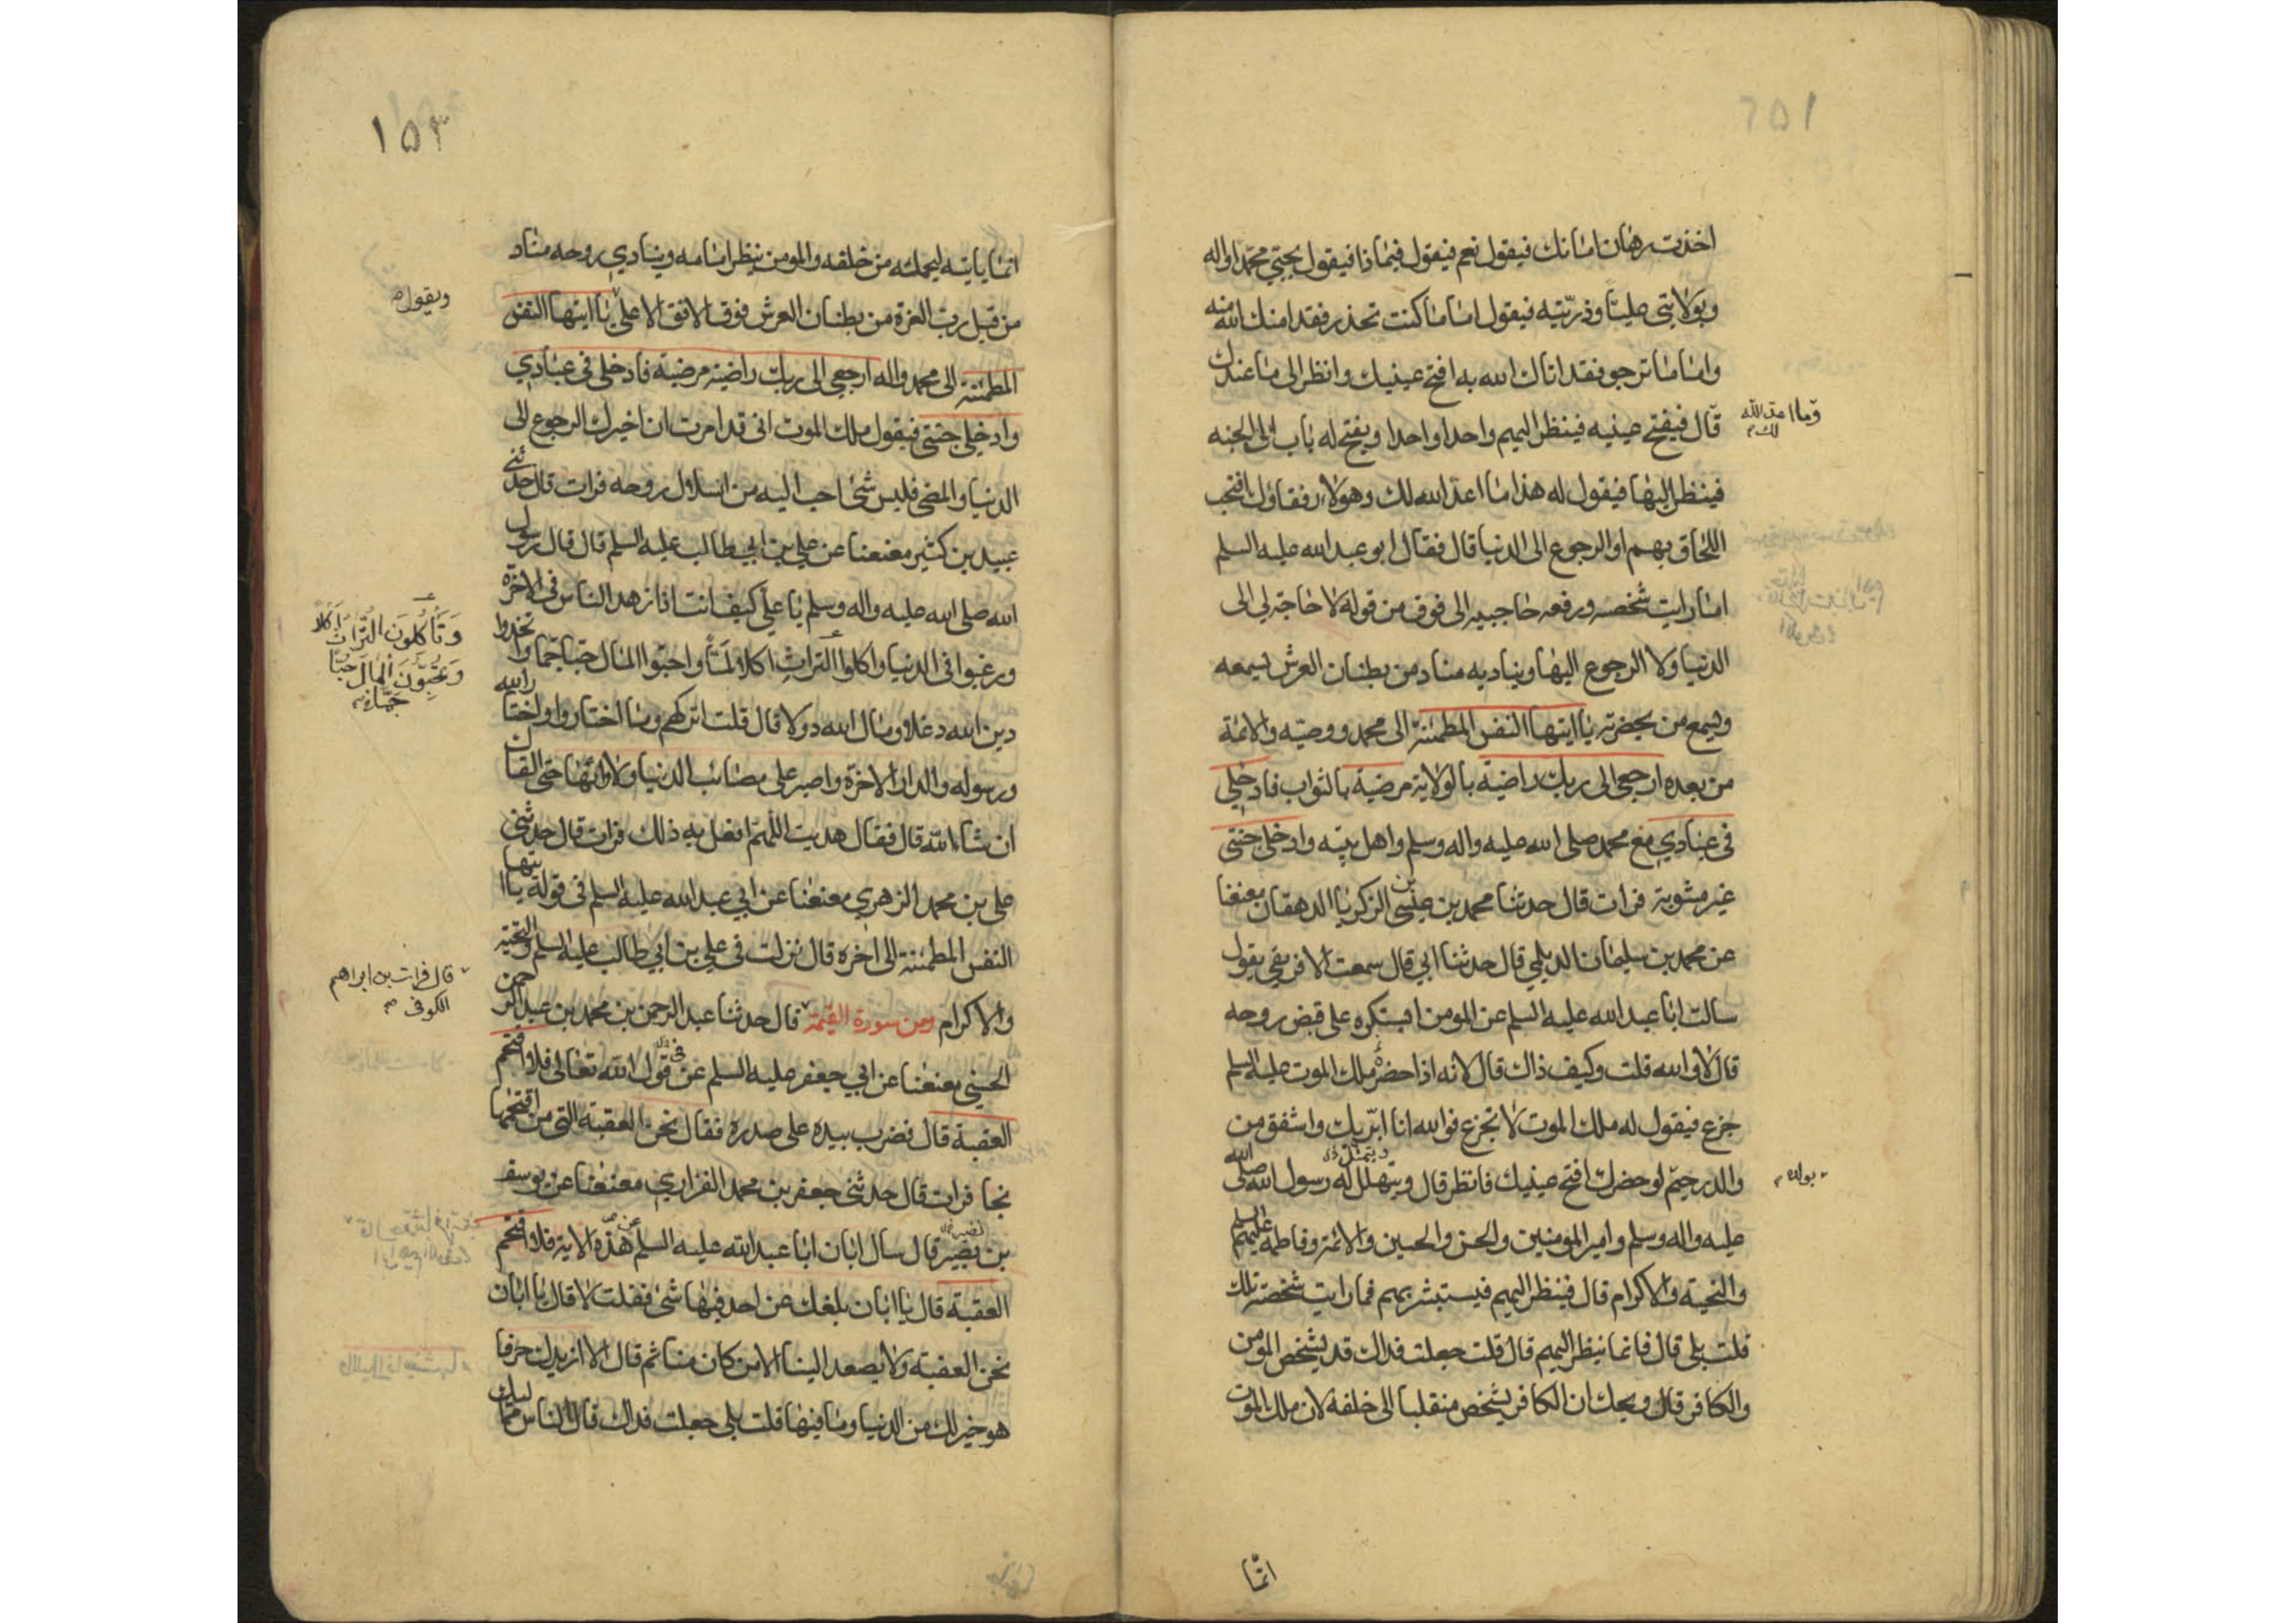 اخذت رهان امانك فيقول نعم فيقول فيماذا فيقول بحبي محمدا واله
وبولايتي عليا وذريته فيقول اما ما كنت تحذر فقد امنك الله منه
واما ما ترجو فقد اتاك الله به افتح عينيك وانظر الى ما عندك
قال فيفتح عينيه فينظر اليهم واحدا واحدا ويفتح له باب الى الجنه
وما اعد الله لك
فينظر اليها فيقول له هذا ما اعد الله لك وهولاء رفقاؤك افتحب
اللحاق بهم او الرجوع الى الدنيا قال فقال ابو عبد الله عليه السلم
اما رايت شخصه ورفعه حاجبيه الى فوق من قوله لا حاجة لي الى
الدنيا ولا الرجوع اليها ويناديه مناد من بطنان العرش يسمعه
ويسمع من بحضرته يا ايتها النفس المطمئنة الى محمد ووصيه والائمة
من بعده ارجعي الى ربك راضية بالولاية مرضية بالثواب فادخلي
في عبادي مع محمد صلى الله عليه واله وسلم واهل بيته وادخلي جنتي
غير مشوبة فرات قال حدثنا محمد بن عيسى بن الزكريا الدهقان معنعنا
عن محمد بن سليمان الديلمي قال حدثنا ابي قال سمعت الافريقي يقول
سالت ابا عبد الله عليه السلم عن المومن ايستكره على قبض روحه
قال لا والله قلت وكيف ذاك قال لانه اذا حضره ملك الموت عليه السلم
جزع فيقول له ملك الموت لا تجزع فوالله انا ابر بك واشفق من
والد رحيم لو حضرك افتح عينيك فانظر قال ويتهلل له رسول الله صلى الله
بولده
ويتمثل
عليه واله وسلم وامير المومنين والحسن والحسين والائمة وفاطمة عليهم السلم
والتحية والاكرام قال فينظر اليهم فيستبشر بهم فما رايت شخصته تلك
قلت بلى قال فانما ينظر اليهم قال قلت جعلت فداك قد يشخص المومن
والكافر قال ويحك ان الكافر يشخص منقلبا الى خلفه لان ملك الموت
انما
١٥٣
انما ياتيه ليحمله من خلفه والمومن ينظر امامه وينادي روحه مناد
من قبل رب العزة من بطنان العرش فوق الافق الاعلى يا ايتها النفس
ويقول
المطمئنة الى محمد واله ارجعي الى ربك راضية مرضية فادخلي في عبادي
وادخلي جنتي فيقول ملك الموت اني قد امرت ان اخيرك الرجوع الى
الدنيا والمضي فليس شئ احب اليه من انسلال روحه فرات قال حدثني
عبيد بن كثير معنعنا عن علي بن ابي طالب عليه السلم قال قال رسول
الله صلى الله عليه واله وسلم يا علي كيف انت اذا زهد الناس في الاخرة
ورغبوا في الدنيا واكلوا التراث اكلا لما واحبوا المال حبا جما واتخذوا
وَتَأكُلُونَ التُّرَاثَ اَكلًا
وَتُحِبُّونَ المَالَ حُبًّا
جَمًّا
دين الله دغلا ومال الله دولا قال قلت اتركهم وما اختاروا واختار الله
ورسوله والدار الاخرة واصبر على مصائب الدنيا ولاوائها حتى القاك
ان شاء الله قال فقال هديت اللهم افعل به ذلك فرات قال حدثني
علي بن محمد الزهري معنعنا عن ابي عبد الله عليه السلم في قوله يا ايتها
النفس المطمئنة الى اخره قال نزلت في علي بن ابي طالب عليه السلم والتحية
والاكرام ومن سورة القيمة قال حدثنا عبد الرحمن بن محمد بن عبد الرحمن
قال فرات بن ابراهيم
الكوفي
الحسني معنعنا عن ابي جعفر عليه السلم عن قول الله تعالى فلا اقتحم
في
العقبة قال فضرب بيده على صدره فقال نحن العقبة التي من اقتحمها
نجا فرات قال حدثني جعفر بن محمد الفزاري معنعنا عن يوسف
بن بصير قال سال ابان ابا عبد الله عليه السلم عن هذه الاية فلا اقتحم
العقبة قال يا ابان بلغك عن احد فيها شئ فقلت لا قال يا ابان
نحن العقبة ولا يصعد الينا الا من كان منا ثم قال الا ازيدك حرفا
هو خير لك من الدنيا وما فيها قلت بلى جعلت فداك قال الناس مماليك